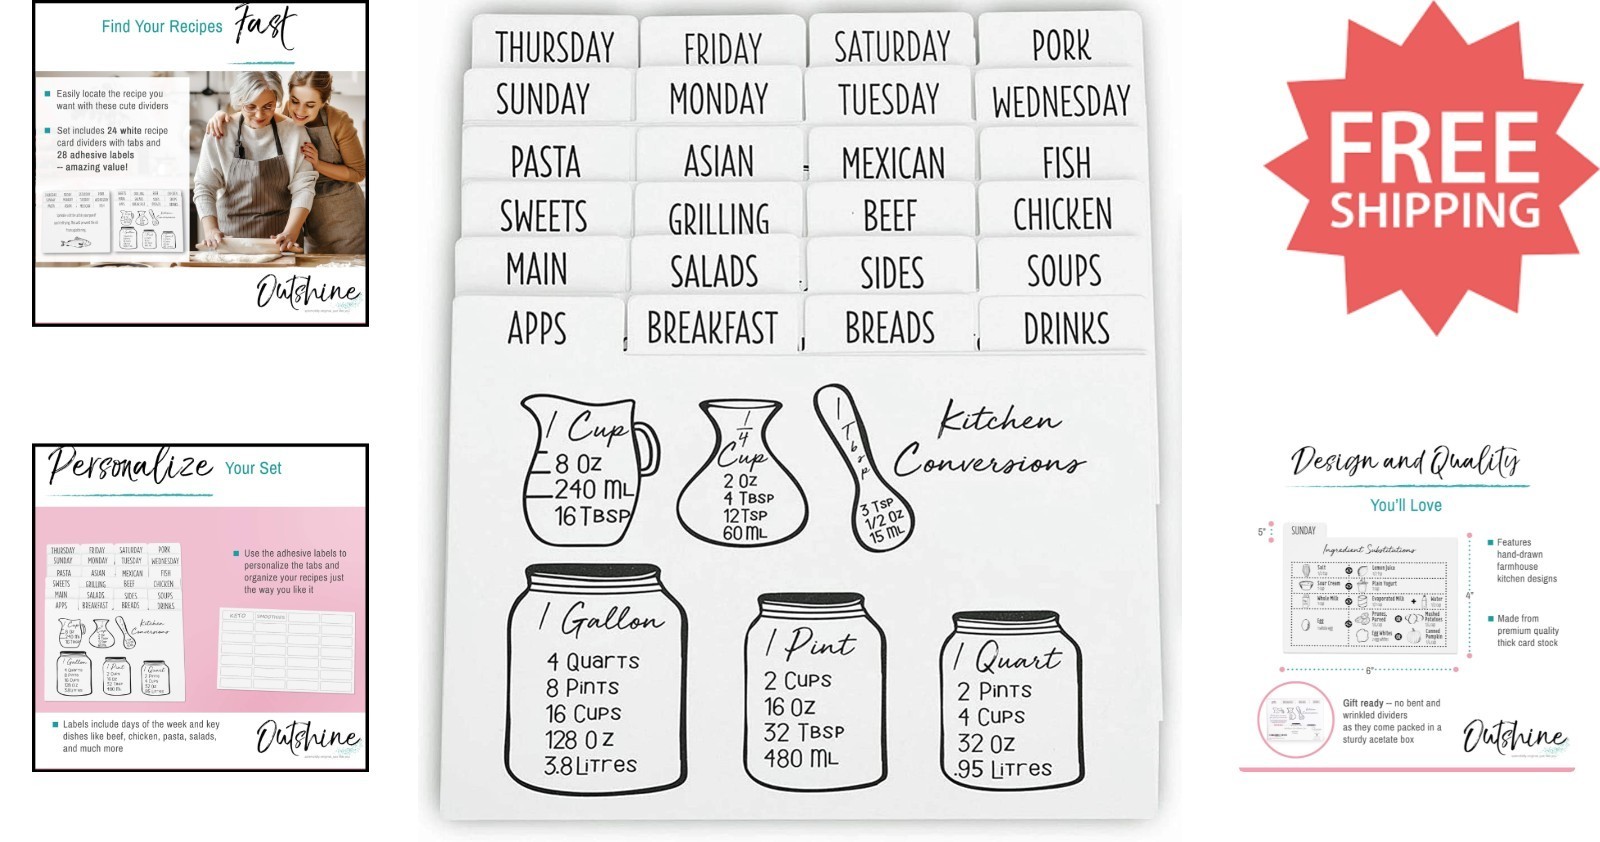 Find Your Recipes Fast
Easily locate the recipe you
want with these cute dividers
Set includes 24 white recipe
card dividers with tabs and
28 adhesive labels
-- amazing value!
Outshine
THURSDAY FRIDAY SATURDAY PORK
SUNDAY MONDAY TUESDAY WEDNESDAY
PASTA ASIAN MEXICAN FISH
SWEETS GRILLING BEEF CHICKEN
MAIN SALADS SIDES SOUPS
APPS BREAKFAST BREADS DRINKS
Kitchen
Conversions
1 Cup
8 Oz
240 ML
16 TBSP
1/4
Cup
2 Oz
4 TBSP
12 TSP
60 ML
1 Tbsp
3 TSP
1/2 Oz
15 ML
1 Gallon
4 QUARTS
8 PINTS
16 CUPS
128 Oz
3.8 LITRES
1 Pint
2 CUPS
16 Oz
32 TBSP
480 ML
1 Quart
2 PINTS
4 CUPS
32 Oz
.95 LITRES
FREE
SHIPPING
Personalize Your Set
THURSDAY FRIDAY SATURDAY PORK
SUNDAY MONDAY TUESDAY WEDNESDAY
PASTA ASIAN MEXICAN FISH
SWEETS GRILLING BEEF CHICKEN
MAIN SALADS SIDES SOUPS
APPS BREAKFAST BREADS DRINKS
Kitchen
Conversions
1 Gallon
1 Pint
1 Quart
Use the adhesive labels to
personalize the tabs and
organize your recipes just
the way you like it
KETO SMOOTHIES
Labels include days of the week and key
dishes like beef, chicken, pasta, salads,
and much more
Outshine
Design and Quality
You'll Love
5"
SUNDAY
Ingredient Substitutions
Salt
Lemon Juice
Sour Cream
Plain Yogurt
Whole Milk
Evaporated Milk + Water
Egg
Mashed
Potatoes
Egg Whites
Canned
Pumpkin
4"
6"
Features
hand-drawn
farmhouse
kitchen designs
Made from
premium quality
thick card stock
Gift ready -- no bent and
wrinkled dividers
as they come packed in a
sturdy acetate box
Outshine